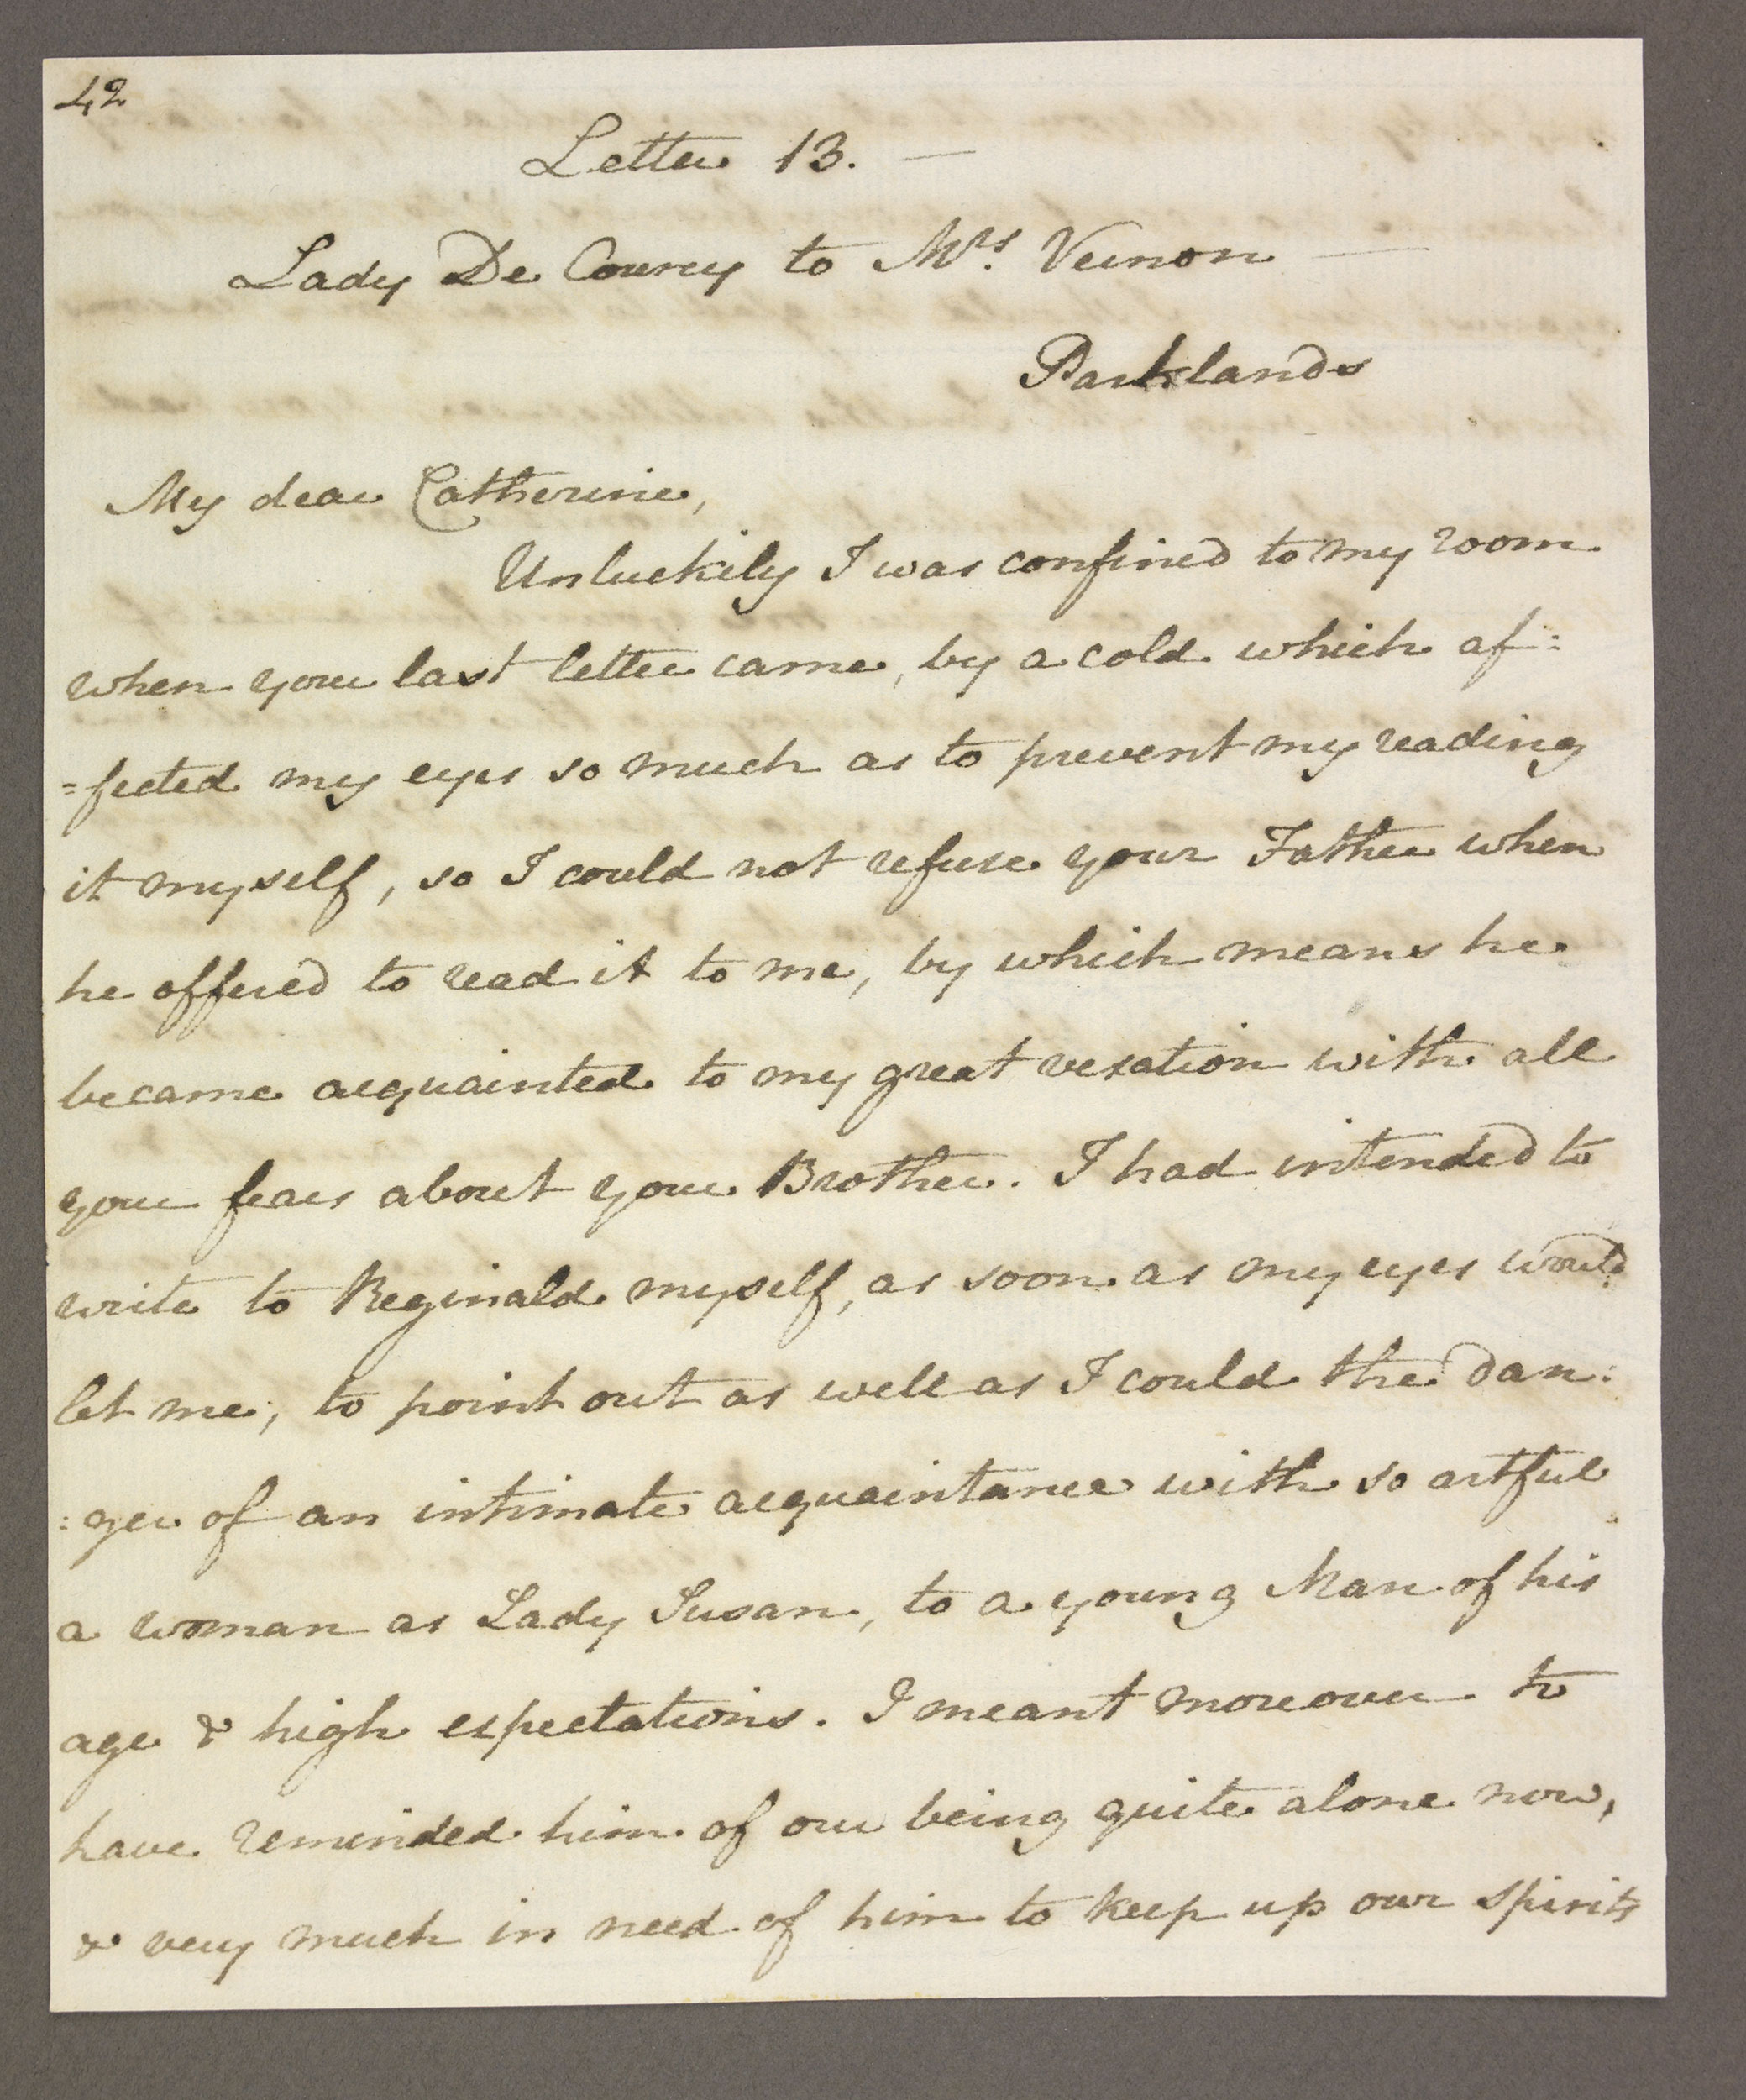 42
Letter 13. —
Lady De Courcy to Mrs. Vernon —
Parklands
My dear Catherine,
Unluckily I was confined to my room
when your last letter came, by a cold which af=
=fected my eyes so much as to prevent my reading
it myself, so I could not refuse your Father when
he offered to read it to me, by which means he
became acquainted to my great vexation with all
your fears about your Brother. I had intended to
write to Reginald myself, as soon as my eyes would
let me, to point out as well as I could the dan:
:ger of an intimate acquaintance with so artful
a woman as Lady Susan, to a young Man of his
age & high expectations. I meant moreover to
have reminded him of our being quite alone now,
& very much in need of him to keep up our spirits